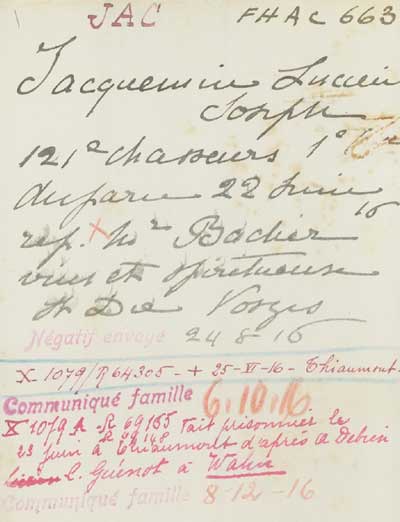 JAC FHAC 663
Jacquemin Lucien
Joseph
121e chasseurs 1e Cie
disparu 22 Juin
16
rep. X Mr Bacher
vins et spiritueux
St Dié Vosges
Négatif envoyé 24 8-16
X 1079/R 64305 - + 25-VI-16 - Thiaumont.
Communiqué famille 6.10.16
X 1079 A - R 69165 fait prisonnier le
23 juin à Thiaumont d'après
C. Guénot à Wahn
Communiqué famille 8-12-16